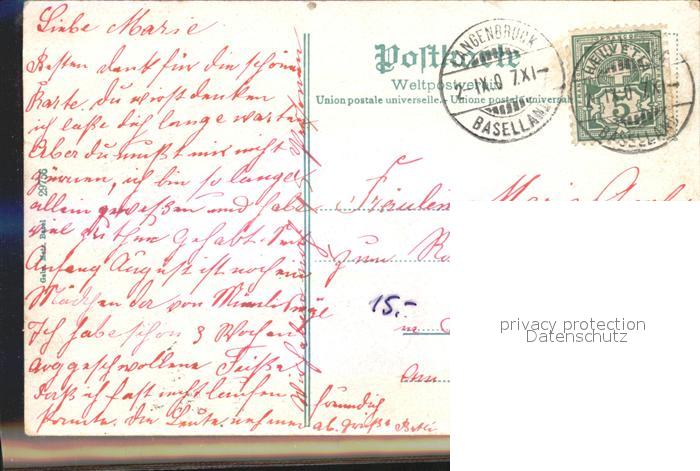 Liebe Marie
Besten dank für die schöne
Karte, du wirst denken
ich laße dich lange warten
Aber du mußt mir nicht
zürnen, ich bin so lange
allein gewesen und habe
viel zu thun gehabt. Seit
Anfang August ist noch ein
Mädchen da von
Ich habe schon 3 Wochen
arg geschwollene Füße
daß ich fast nicht laufen
konnte. die Leute nehmen
freundlich
Postkarte
Weltpostverein
Union postale universelle. - Unione postale universale
LANGENBRUCK
7.XI-
BASELLAND
HELVETIA
5
Fräulein
zum
15.-
Basel 29736
privacy protection
Datenschutz